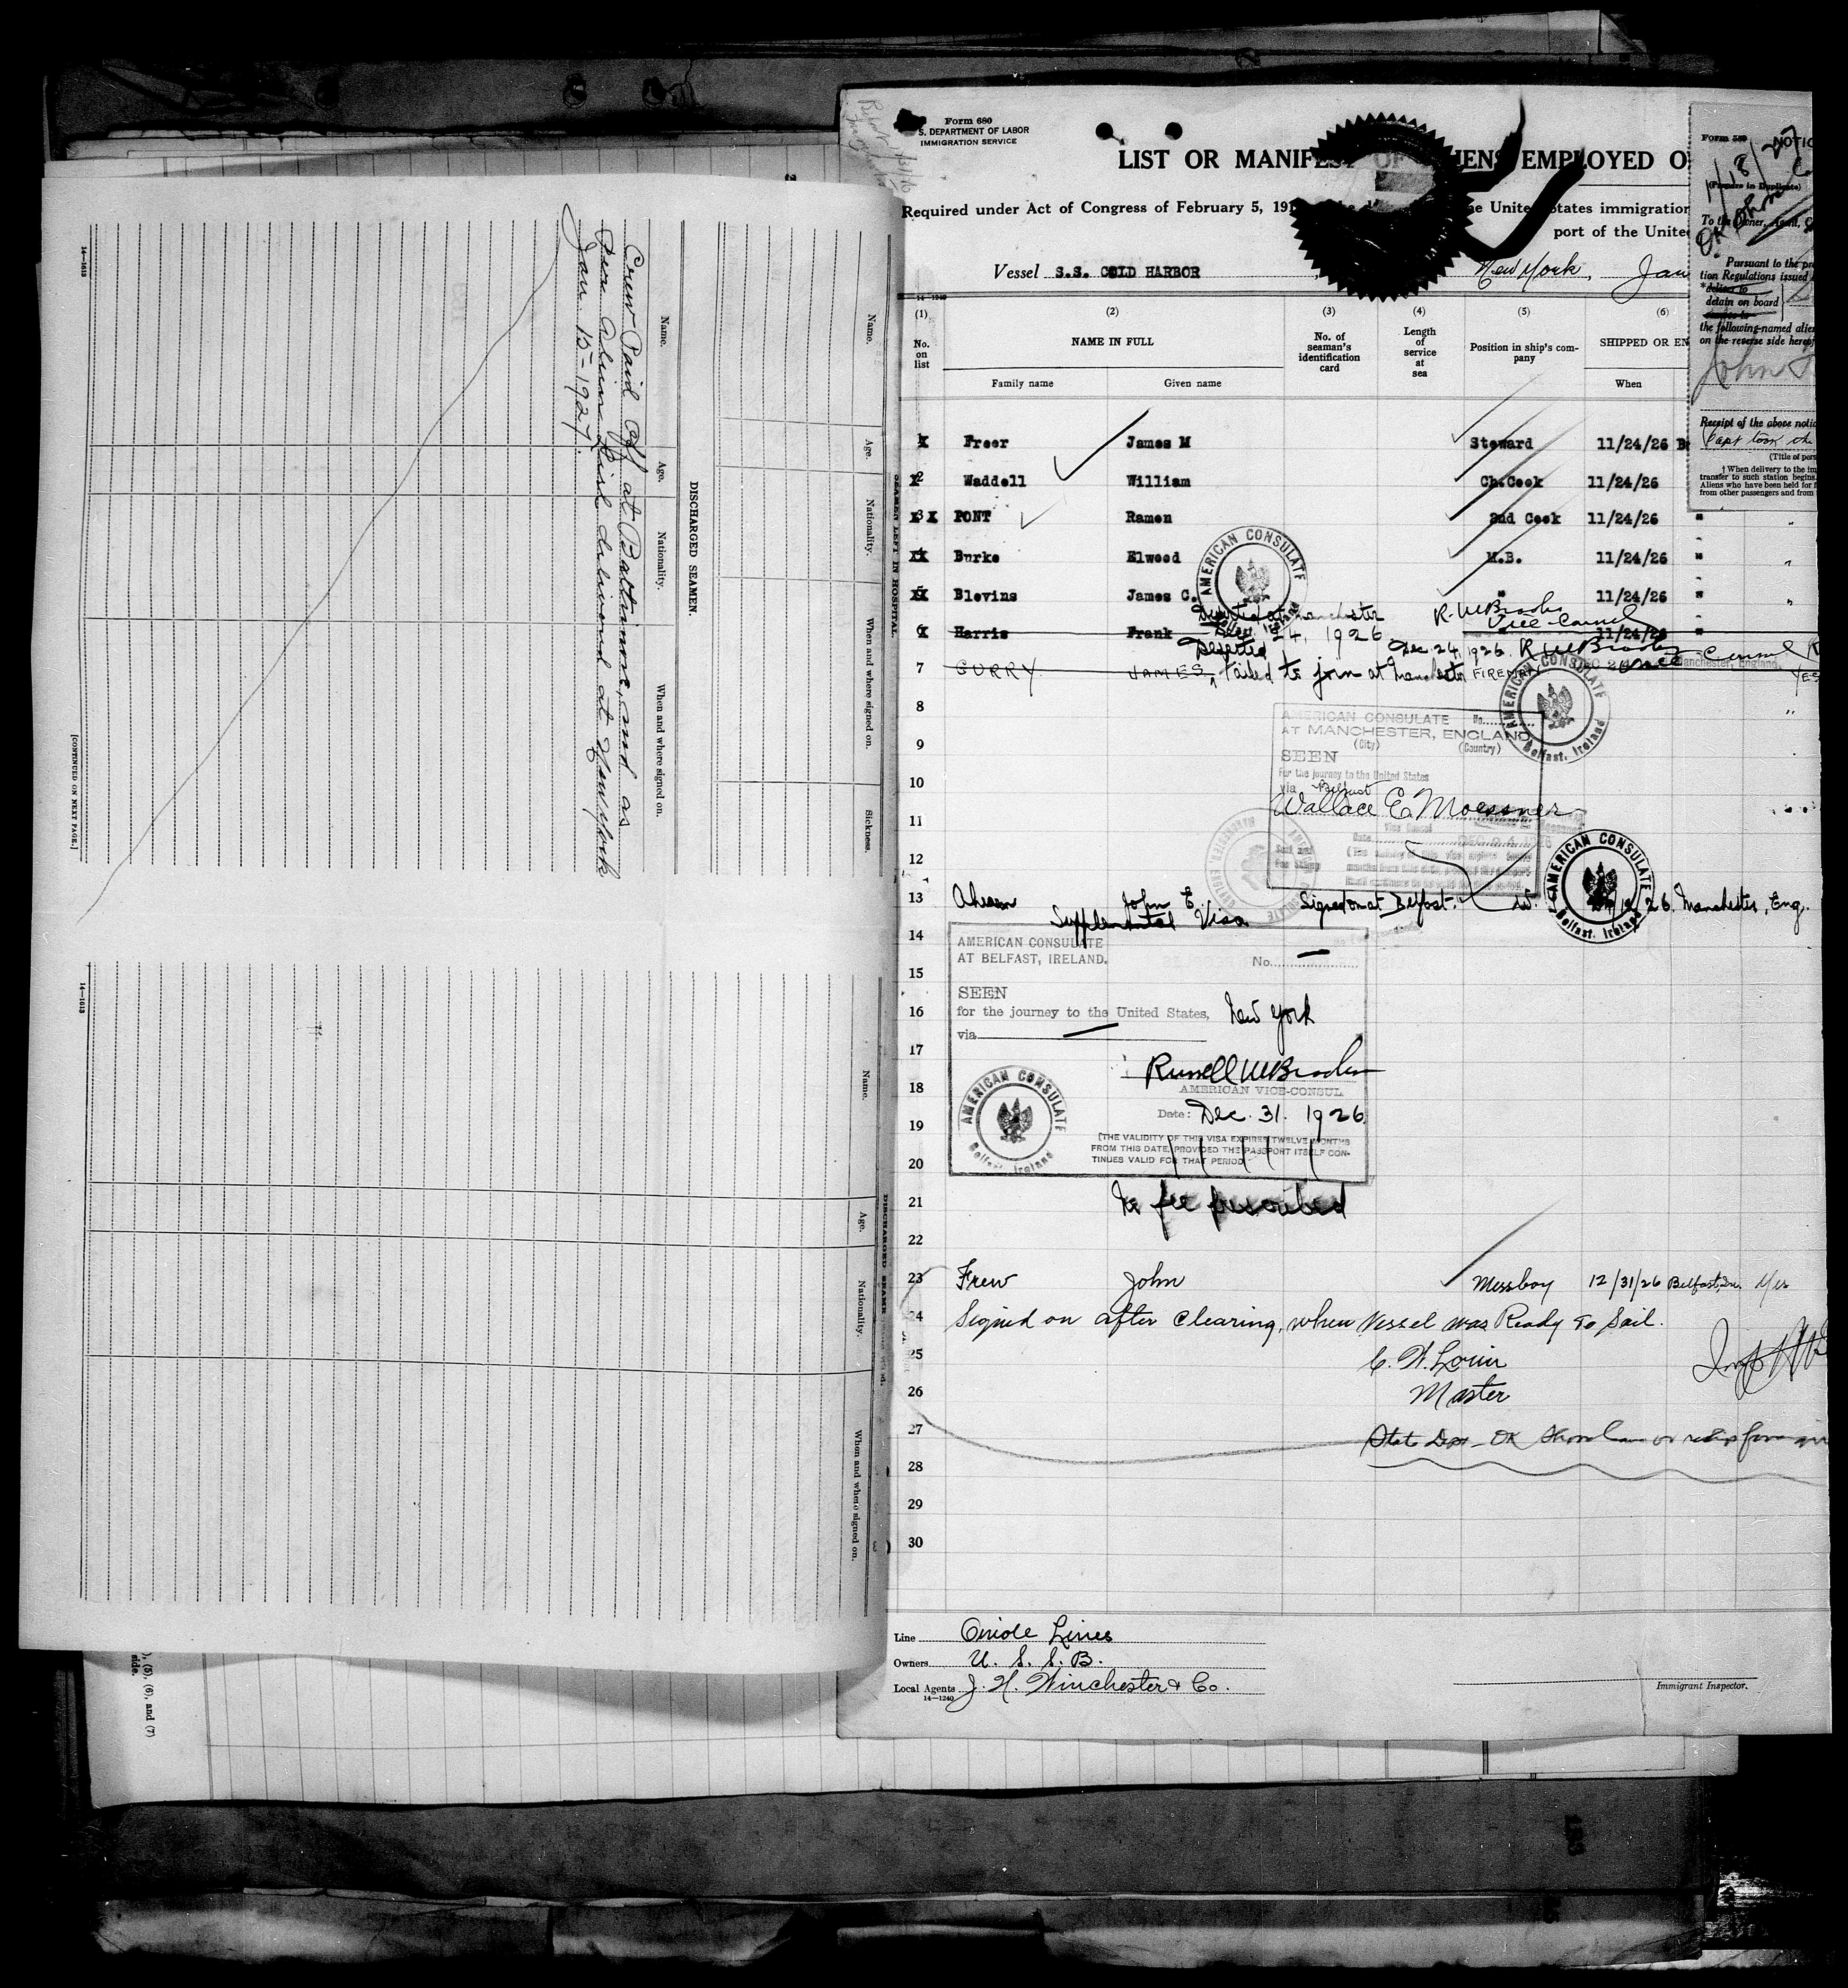 Form 680
S. DEPARTMENT OF LABOR
IMMIGRATION SERVICE
LIST OR MANIFEST OF ALIENS EMPLOYED O
Required under Act of Congress of February 5, 191 the United States immigration
port of the Unite
Vessel S.S. COLD HARBOR New York, Jan
14-1240
(1) (2) (3) (4) (5) (6)
No. on list
NAME IN FULL
Family name Given name
No. of seaman's identification card
Length of service at sea
Position in ship's company
SHIPPED OR EN
When
Freer James M Steward 11/24/26
2 Waddell William Ch.Cook 11/24/26
3 X PONT Ramon 2nd Cook 11/24/26 "
Burke Elwood M.B. 11/24/26 "
Blevins James C. " 11/24/26 "
Deserted at Manchester
Dec. 24, 1926
R. W Braden
Vice-Consul
6 Harris Frank 11/24/26
Deserted Dec 24, 1926. R W Braden Vice Consul
7 CURRY JAMES, failed to join at Manchester FIREMAN YES
8
9
10
11
12
AMERICAN CONSULATE No.
AT MANCHESTER, ENGLAND
(City) (Country)
SEEN
For the journey to the United States
via Belfast
Wallace E. Moessner
Vice Consul
AMERICAN CONSULATE
Belfast, Ireland
AMERICAN CONSULATE
Belfast, Ireland
AMERICAN CONSULATE
Belfast, Ireland
13 Ahearn John E. Signed on at Belfast. 26. Manchester, Eng.
Supplemental Visa
14
15
16
17
18
19
20
AMERICAN CONSULATE
AT BELFAST, IRELAND.
No.
SEEN
for the journey to the United States, New York
via
Russell W Braden
AMERICAN VICE-CONSUL
Date: Dec. 31. 1926.
(THE VALIDITY OF THIS VISA EXPIRES TWELVE MONTHS
FROM THIS DATE, PROVIDED THE PASSPORT ITSELF CON-
TINUES VALID FOR THAT PERIOD
AMERICAN CONSULATE
Belfast, Ireland
No fee prescribed
21
22
23 Frew John Messboy 12/31/26 Belfast, Ire. Yes
24 Signed on after clearing, when Vessel was Ready to Sail.
25 C. W. Lorin
26 Master
27 State Dept - OK
28
29
30
Line Oriole Lines
Owners U. S. S. B.
Local Agents J. H. Winchester & Co.
14-1240
Immigrant Inspector.
Form 580 NOTIC
1/18/27
(Prepare in Duplicate)
To the Owner, Agent,
OK
Pursuant to the pr
tion Regulations issued
*deliver to
detain on board
remove to
the following-named alien
on the reverse side hereof
John F
Receipt of the above notic
Capt took
(Title of pers
† When delivery to the im
transfer to such station begins.
Aliens who have been held for
from other passengers and from
SEAMEN LEFT IN HOSPITAL.
Name. Age. Nationality. When and where signed on. Sickness.
DISCHARGED SEAMEN.
Name. Age. Nationality. When and where signed on.
Crew Paid Off at Baltimore, Md as
Per Alien List delivered at New York
Jan. 15-1927.
[CONTINUED ON NEXT PAGE.]
14-1613
DISCHARGED SEAMEN
Name. Age. Nationality. When and where signed on.
14-1613
), (5), (6), and (7)
side.